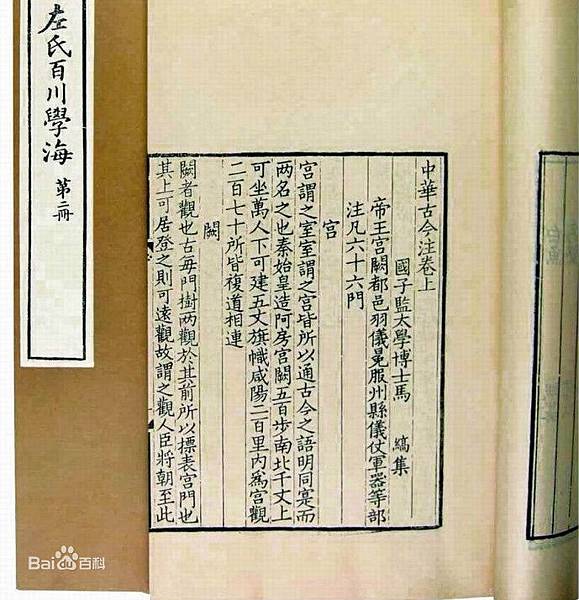 左氏百川學海 第二册
中華古今注卷上
國子監太學博士馬 縞集
帝王宮闕都邑羽儀冕服州縣儀仗軍器等部
注凡六十六門
宮
宮謂之室室謂之宮皆所以通古今之語明同寔而
两名之也秦始皇造阿房宮闕五百步南北千丈上
可坐萬人下可建五丈旗幟咸陽二百里内爲宮觀
二百七十所皆複道相連
闕
闕者觀也古每門樹两觀於其前所以標表宮門也
其上可居登之則可遠觀故謂之觀人臣將朝至此
Bai 百科